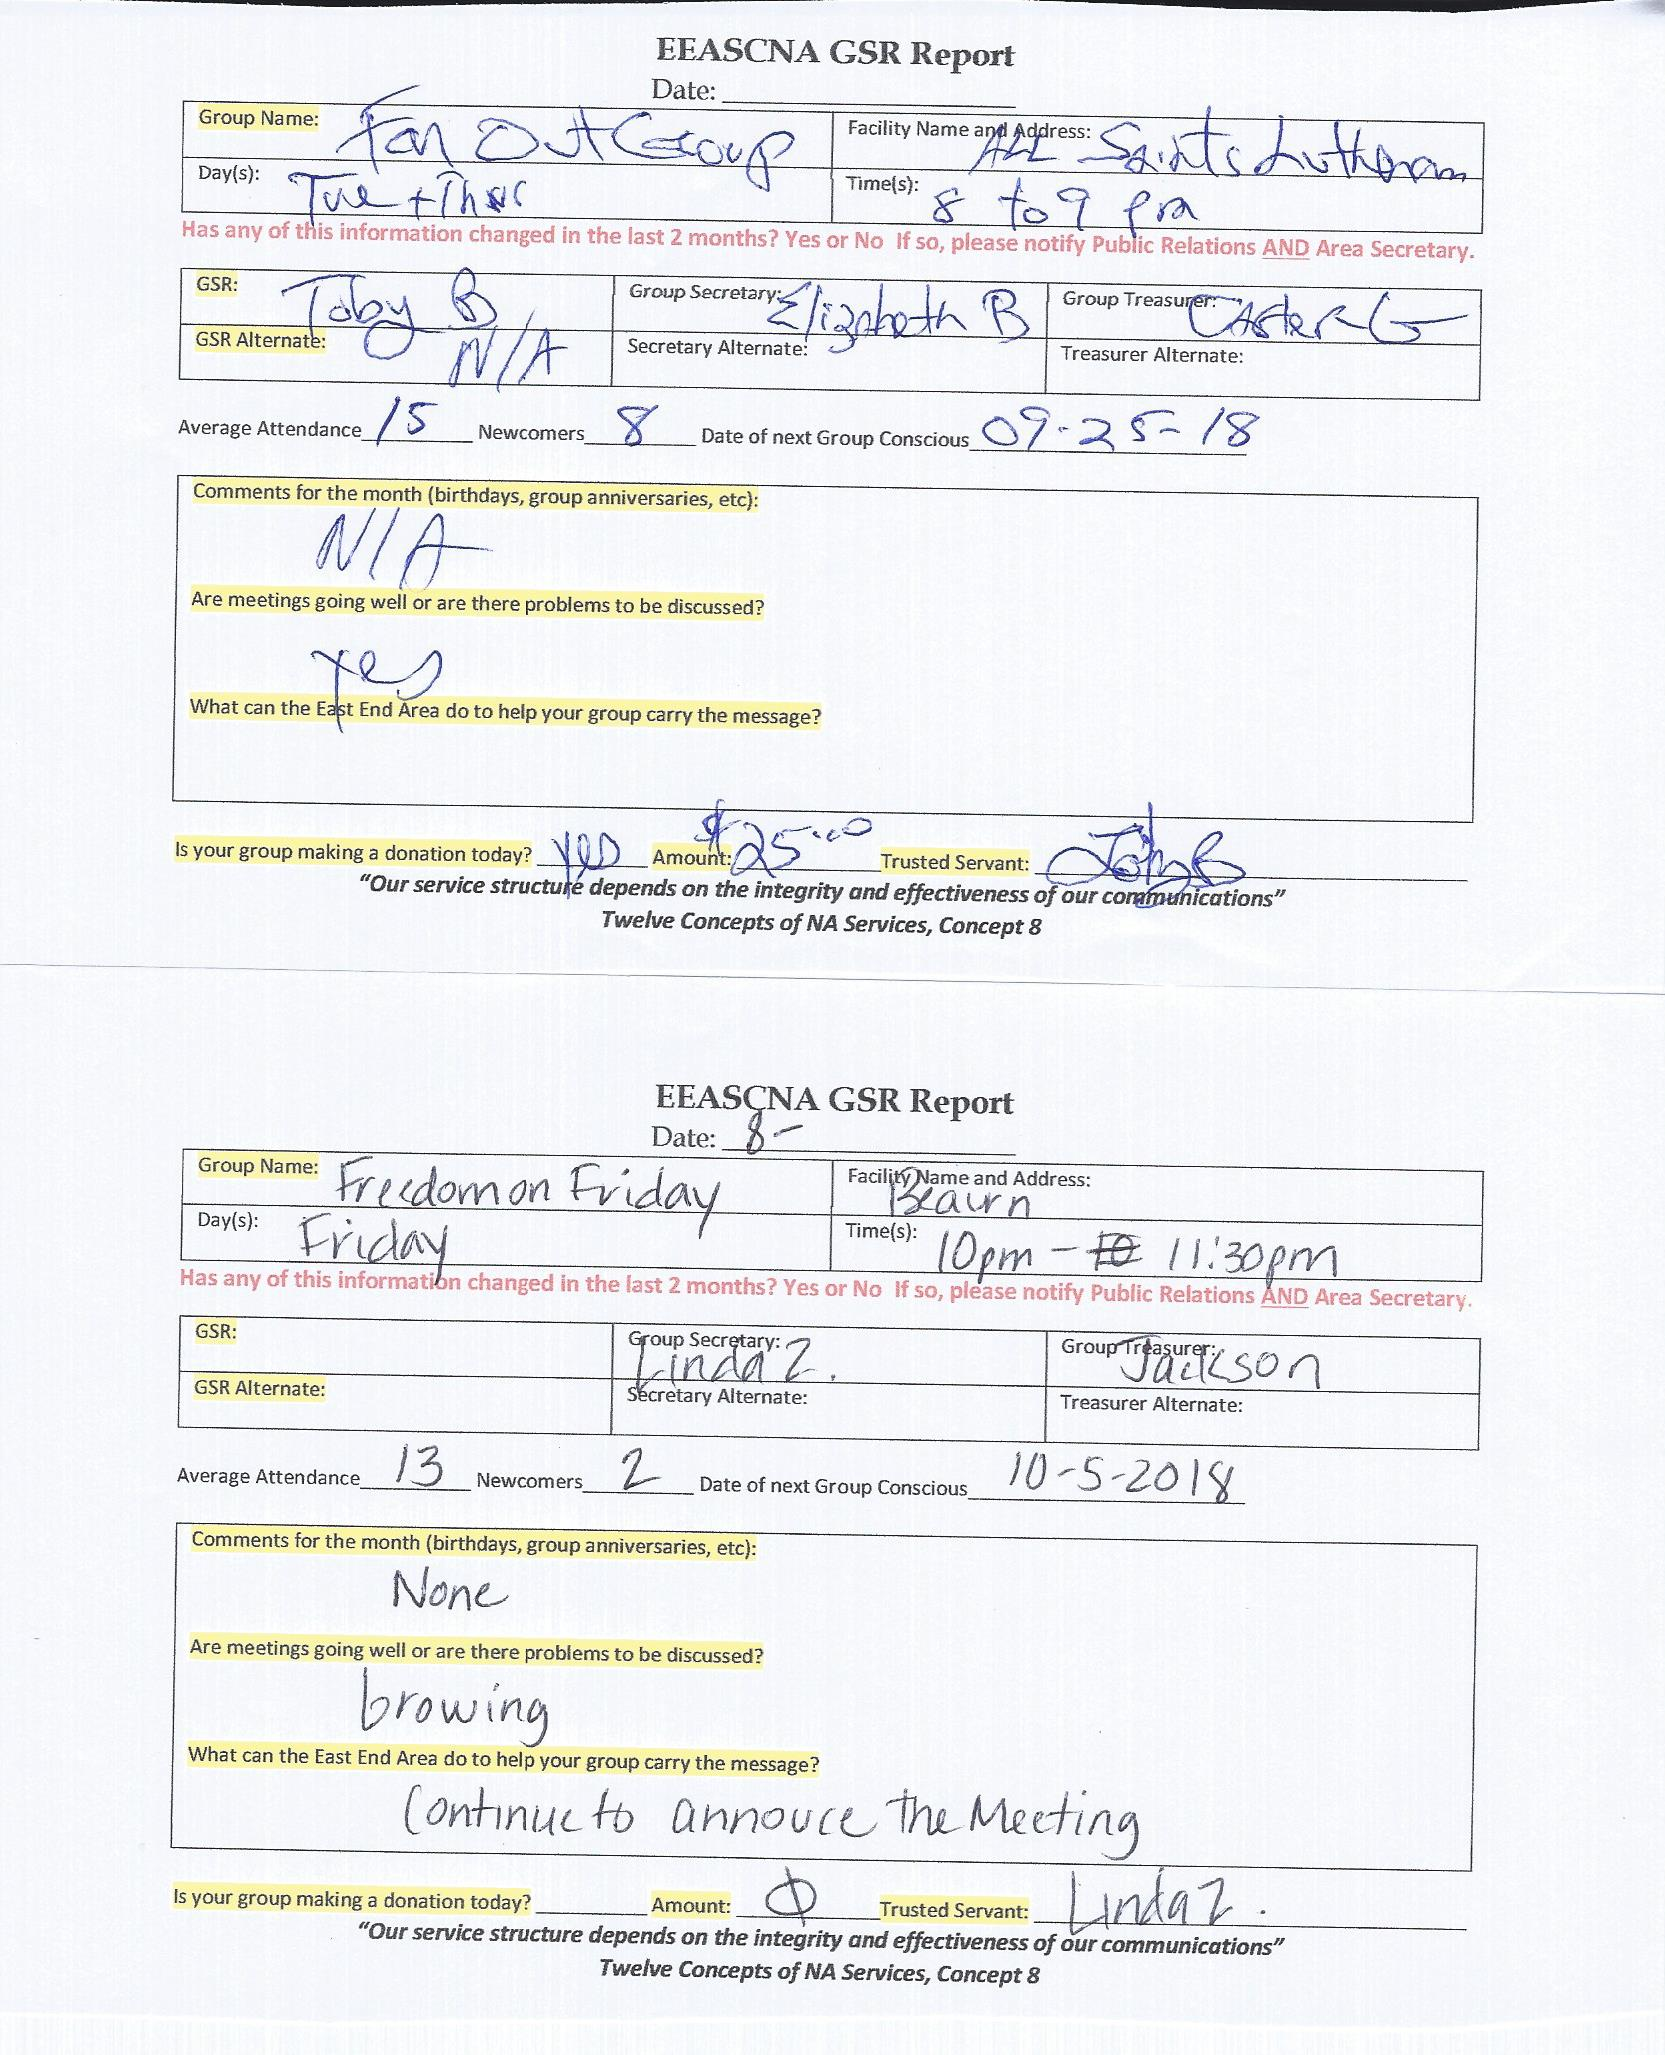 EEASCNA GSR Report
Date:
Group Name: Far Out Group
Facility Name and Address: ALL Saints Lutheran
Day(s): Tue + Thur
Time(s): 8 to 9 pm
Has any of this information changed in the last 2 months? Yes or No If so, please notify Public Relations AND Area Secretary.
GSR: Toby B
Group Secretary: Elizabeth B
Group Treasurer: Carter G
GSR Alternate: N/A
Secretary Alternate:
Treasurer Alternate:
Average Attendance 15 Newcomers 8 Date of next Group Conscious 09-25-18
Comments for the month (birthdays, group anniversaries, etc):
N/A
Are meetings going well or are there problems to be discussed?
yes
What can the East End Area do to help your group carry the message?
Is your group making a donation today? yes Amount: $25.00 Trusted Servant: Toby B
“Our service structure depends on the integrity and effectiveness of our communications”
Twelve Concepts of NA Services, Concept 8
EEASCNA GSR Report
Date: 8-
Group Name: Freedom on Friday
Facility Name and Address:
Day(s): Friday
Time(s): 10pm - 10 11:30pm
Has any of this information changed in the last 2 months? Yes or No If so, please notify Public Relations AND Area Secretary.
GSR:
Group Secretary: Linda Z.
Group Treasurer: Jackson
GSR Alternate:
Secretary Alternate:
Treasurer Alternate:
Average Attendance 13 Newcomers 2 Date of next Group Conscious 10-5-2018
Comments for the month (birthdays, group anniversaries, etc):
None
Are meetings going well or are there problems to be discussed?
Growing
What can the East End Area do to help your group carry the message?
Continue to annouce the Meeting
Is your group making a donation today? Amount: Ø Trusted Servant: Linda Z.
“Our service structure depends on the integrity and effectiveness of our communications”
Twelve Concepts of NA Services, Concept 8